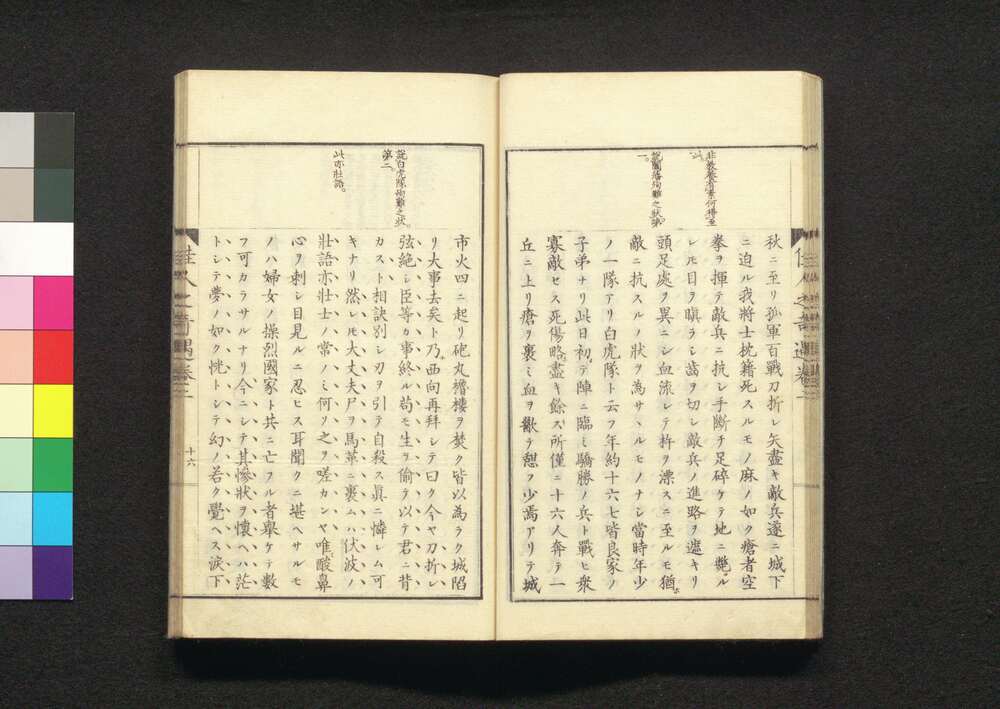 非教養有素何得至
此
説闔藩殉難之状第
一
秋ニ至リ孤軍百戰刀折レ矢盡キ敵兵遂ニ城下
ニ迫ル我將士枕籍死スルモノ麻ノ如ク瘡者空
拳ヲ揮テ敵兵ニ抗シ手斷チ足碎ケテ地ニ斃ル
レ𪜈目ヲ瞋ラシ齒ヲ切シ敵兵ノ進路ヲ遮キリ
頭足處ヲ異ニシ血流レテ杵ヲ漂スニ至ルモ猶ホ
敵ニ抗スルノ狀ヲ為サヽルモノナシ當時年少
ノ一隊アリ白虎隊ト云フ年約十六七皆良家ノ
子弟ナリ此日初テ陣ニ臨ミ驕勝ノ兵ト戰ヒ衆
寡敵セス死傷略盡キ餘ス所僅ニ十六人奔テ一
丘ニ上リ瘡ヲ裹ミ血ヲ歠テ憩フ少焉アリテ城
説白虎隊殉難之状
第二
此亦壯語
市火四ニ起リ砲丸櫓樓ヲ焚ク皆以為ラク城陷
リ大事去矣ト乃西向再拜シテ曰ク今ヤ刀折レ
弦絶シ臣等カ事終ル苟モ生ヲ偷テ以テ君ニ背
カスト相訣別シ刃ヲ引テ自殺ス眞ニ憐レム可
キナリ然レ𪜈大丈夫尸ヲ馬革ニ裹ムハ伏波ノ
壯語亦壯士ノ常ノミ何リ之ヲ嗟カンヤ唯酸鼻
心ヲ刺シ目見ルニ忍ヒス耳聞クニ堪ヘサルモ
ノハ婦女ノ操烈國家ト共ニ亡フル者擧ケテ數
フ可カラサルナリ今ニシテ其慘狀ヲ懷ヘハ茫
トシテ夢ノ如ク恍トシテ幻ノ若ク覺ヘス淚下
佳人之奇遇卷二
十六